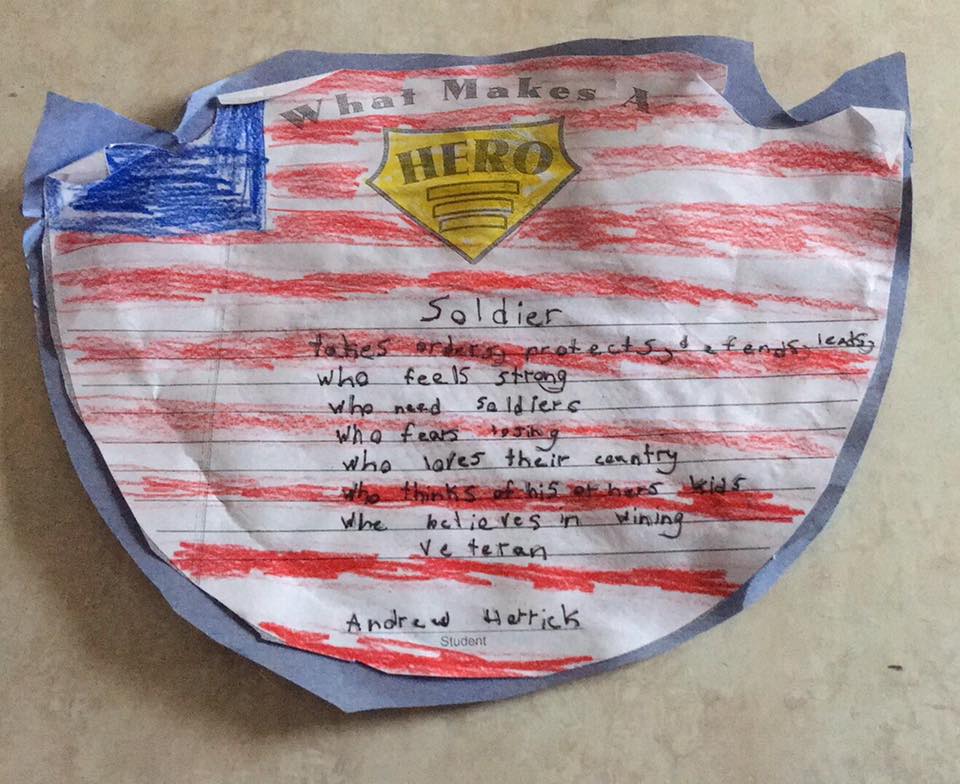 What Makes A
HERO
Soldier
takes orders, protects, defends, leads,
who feels strong
who need soldiers
who fears losing
who loves their country
who thinks of his or hers kids
who believes in wining
Veteran
Andrew Herrick
Student